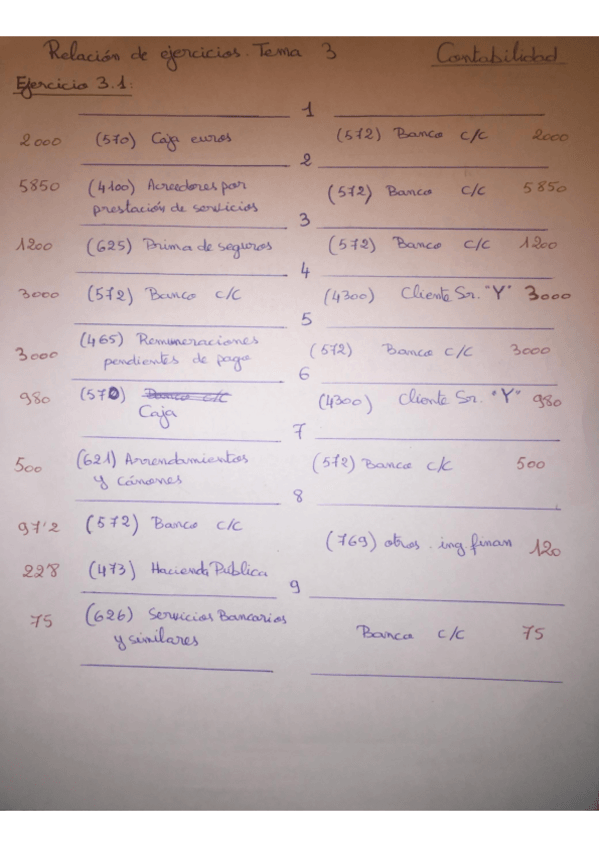 Relación de ejercicios. Tema 3 Contabilidad
Ejercicio 3.1:
1
2000 (570) Caja euros (572) Banco c/c 2000
2
5850 (4100) Acreedores por (572) Banco c/c 5850
prestación de servicios
3
1200 (625) Prima de seguros (572) Banco c/c 1200
4
3000 (572) Banco c/c (4300) Cliente Sr. "Y" 3000
5
3000 (465) Remuneraciones (572) Banco c/c 3000
pendientes de pago
6
980 (570) Banco c/c (4300) Cliente Sr. "Y" 980
Caja
7
500 (621) Arrendamientos (572) Banco c/c 500
y cánones
8
97'2 (572) Banco c/c (769) otros. ing finan 120
228 (473) Hacienda Pública
9
75 (626) Servicios Bancarios Banco c/c 75
y similares